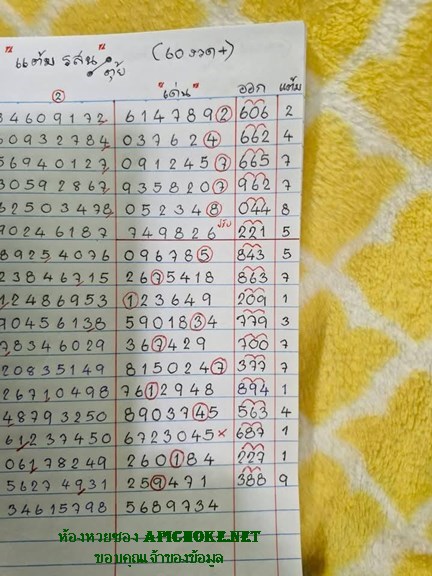 " แต้ม รสน " ตุ้ย (60 งวด+)
② "เด่น" ออก แต้ม
34609172 6147892 606 2
60932784 037624 662 4
56940127 0912457 665 7
30592867 9358207 962 7
62503478 052348 044 8
90246187 749826 221 5
89254076 096785 843 5
23846715 2675418 863 7
12486953 123649 209 1
90456138 5901834 779 3
78346029 367429 700 7
20835149 8150247 377 7
26710498 7612948 894 1
48793250 8903745 563 4
61237450 6723045 × 687 1
06178249 260184 227 1
56274931 259471 388 9
34615798 5689734
ห้องหวยซอง APICHOKE.NET
ขอบคุณเจ้าของข้อมูล